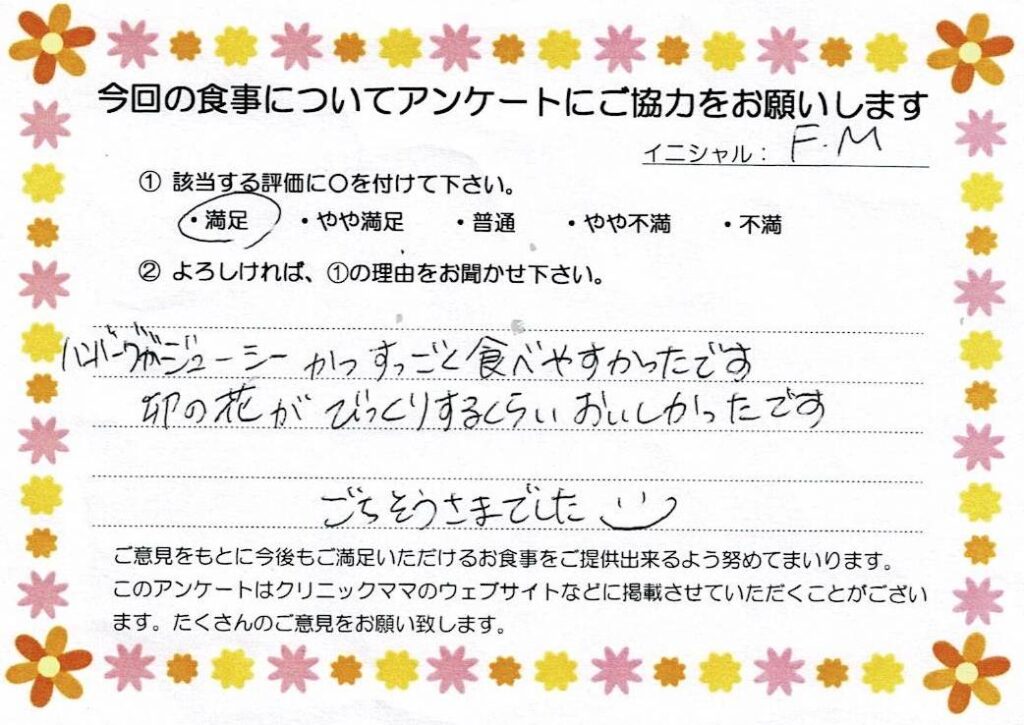 今回の食事についてアンケートにご協力をお願いします
イニシャル： F.M
① 該当する評価に〇を付けて下さい。
・満足 ・やや満足 ・普通 ・やや不満 ・不満
② よろしければ、①の理由をお聞かせ下さい。
ハンバーグがジューシーかつすっごく食べやすかったです
卯の花がびっくりするくらいおいしかったです
ごちそうさまでした
ご意見をもとに今後もご満足いただけるお食事をご提供出来るよう努めてまいります。
このアンケートはクリニックママのウェブサイトなどに掲載させていただくことがござい
ます。たくさんのご意見をお願い致します。